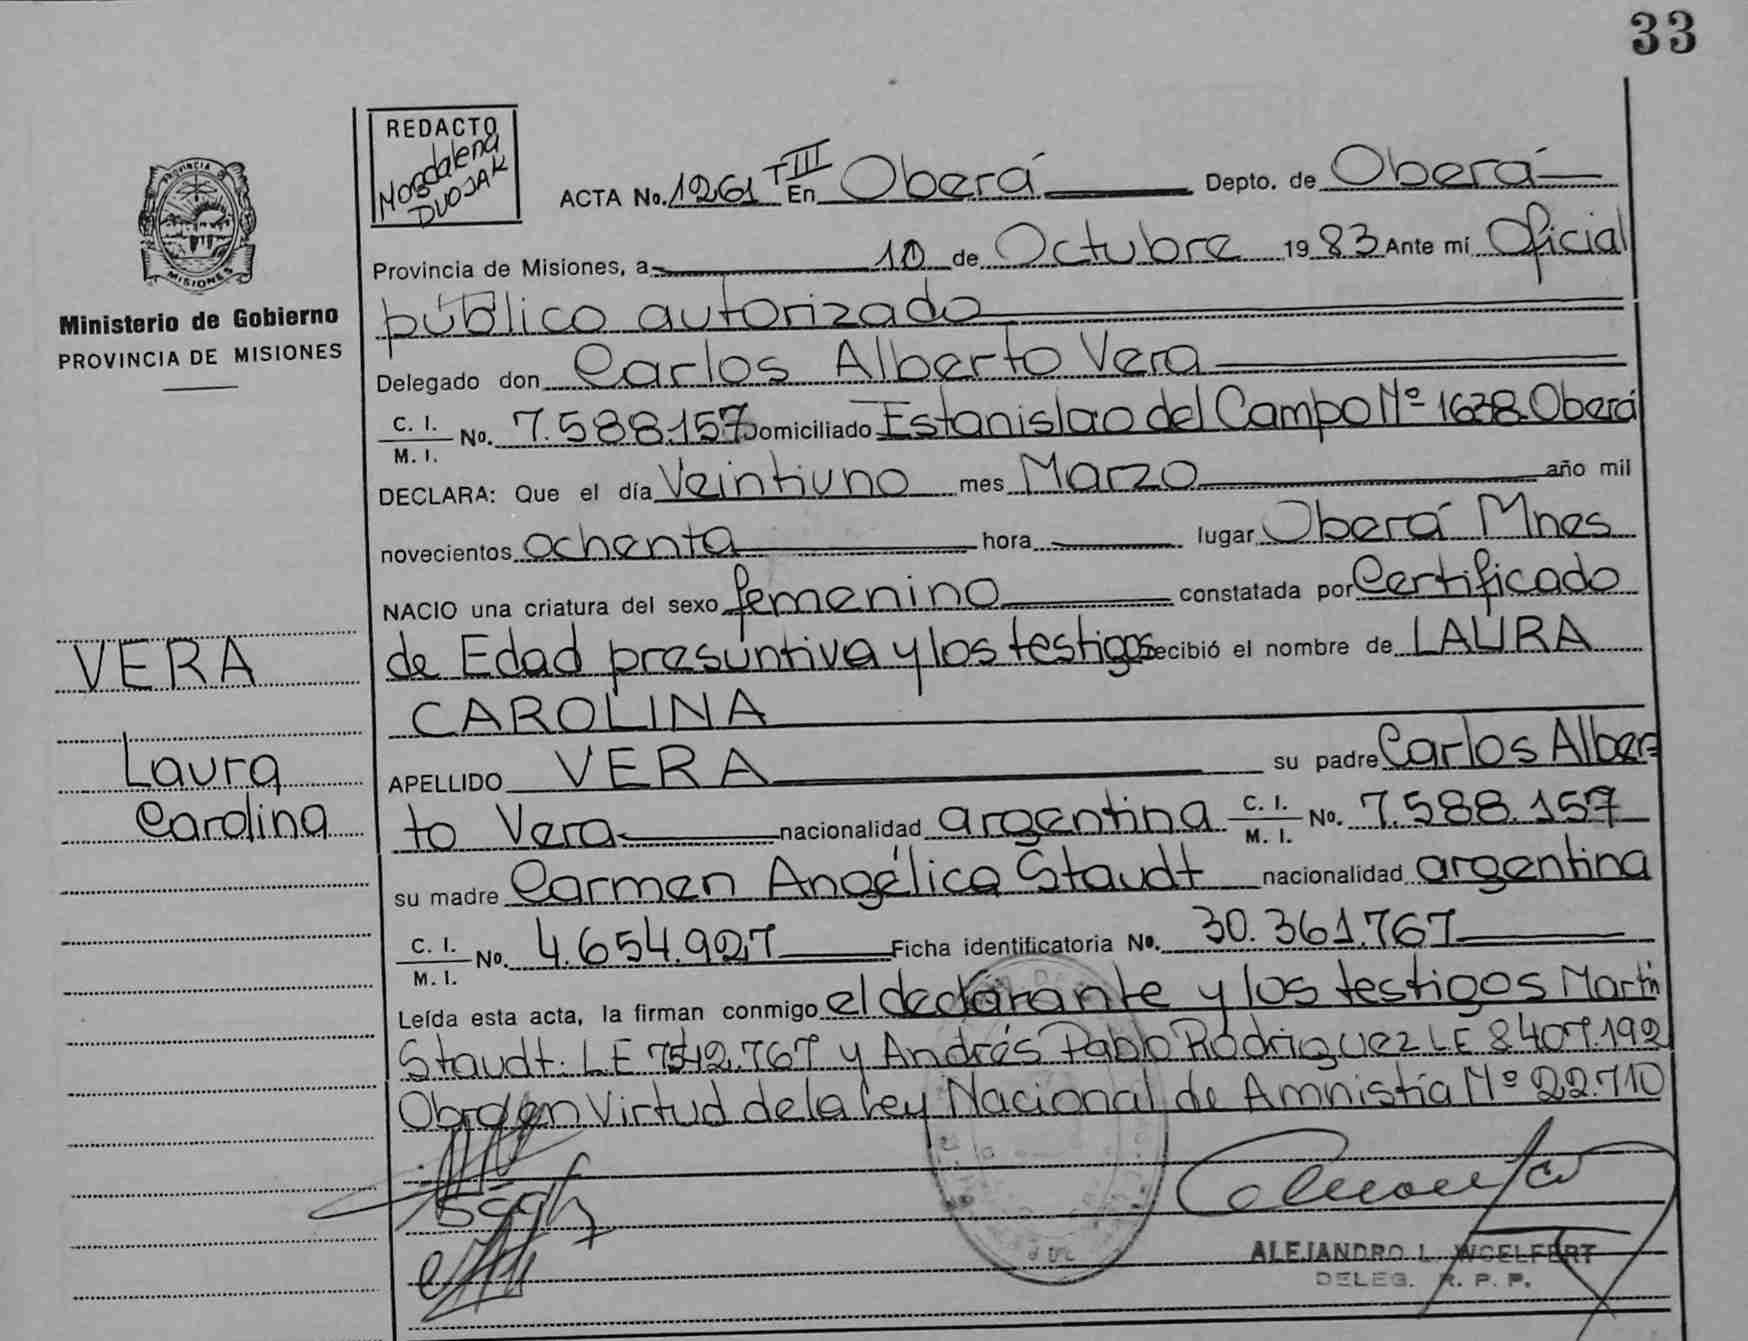 33
REDACTO
Magdalena
DVOJAK
PROVINCIA
MISIONES
Ministerio de Gobierno
PROVINCIA DE MISIONES
ACTA No. 1261 T III En Oberá Depto. de Oberá
Provincia de Misiones, a 10 de Octubre 19 83 Ante mí Oficial
público autorizado
Delegado don Carlos Alberto Vera
C. I. M. I. No. 7.588.157 Domiciliado Estanislao del Campo Nº 1638 Oberá
DECLARA: Que el día Veintiuno mes Marzo año mil
novecientos ochenta hora lugar Oberá Mnes
NACIO una criatura del sexo femenino constatada por Certificado
de Edad presuntiva y los testigos recibió el nombre de LAURA
CAROLINA
APELLIDO VERA su padre Carlos Alber=
to Vera nacionalidad argentina C. I. M. I. No. 7.588.157
su madre Carmen Angélica Staudt nacionalidad argentina
C. I. M. I. No. 4.654.927 Ficha identificatoria No. 30.361.767
Leída esta acta, la firman conmigo el declarante y los testigos Martin
Staudt: LE 7512.767 y Andrés Pablo Rodriguez LE 8407.192
Obra en Virtud de la Ley Nacional de Amnistía Nº 22.710
VERA
Laura
Carolina
ALEJANDRO L. WOELFERT
DELEG. R. P. P.